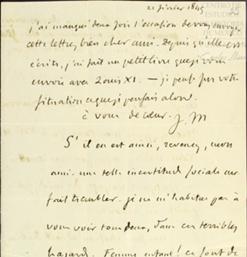 21 février 1845
j'ai manqué deux fois l'occasion de vous envoyer
cette lettre, bien cher ami. Depuis qu'elle est
écrite, j'ai fait un petit livre que je vous
envoie avec Louis XI. — je pense sur votre
situation ce que je pensais alors.
à vous de cœur. J. M
S'il en est ainsi, revenez, mon
ami. une telle incertitude sociale me
fait trembler. je ne m'habitue pas à
vous voir tous deux, dans ces terribles
hasards. Femme, enfant!